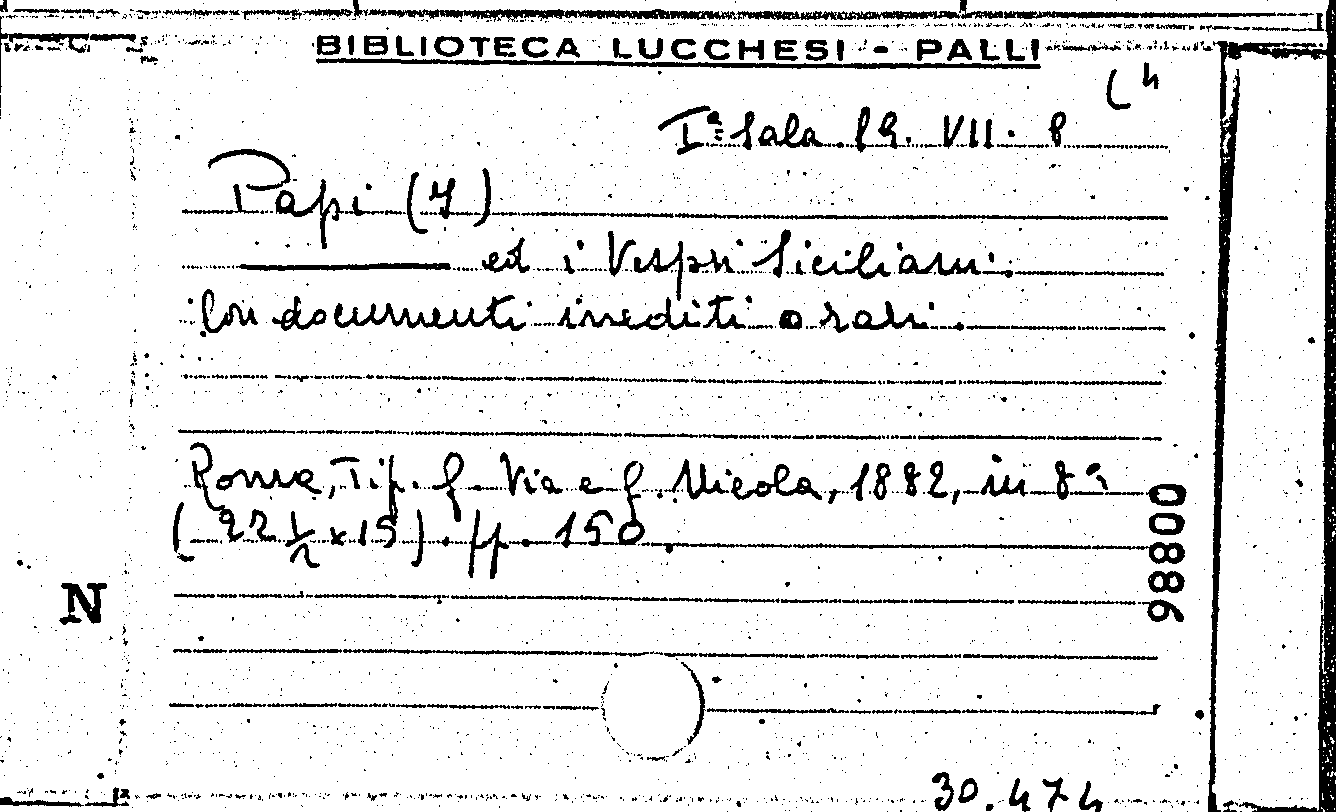 BIBLIOTECA LUCCHESI - PALLI
Iª Sala. 19. VII. 8
Papi (I)
ed i Vespri Siciliani.
Con documenti inediti o rari.
Roma, Tip. f. Via e f. Nicola, 1882, in 8º
(22 1/2 x 15). pp. 150.
00886
N
30.474